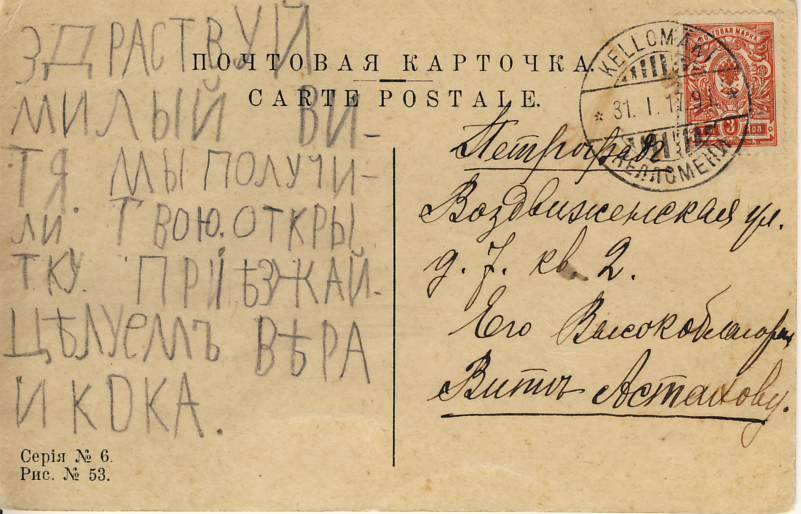 ЗДРАСТВУЙ
МИЛЫЙ ВИ-
ТЯ. МЫ ПОЛУЧИ-
ЛИ ТВОЮ. ОТКРЫ
ТКУ. ПРІѢЗЖАЙ-
ЦѢЛУЕМЪ ВѢРА
И КОКА.
ПОЧТОВАЯ КАРТОЧКА.
CARTE POSTALE.
KELLOMÄKI
31. I. 17
КЕЛЛОМЕКИ
ПОЧТОВАЯ МАРКА
3 КОП
Петроградъ
Воздвиженская ул.
д. 7. кв. 2.
Его Высокоблагор
Витѣ Астахову.
Серія № 6.
Рис. № 53.